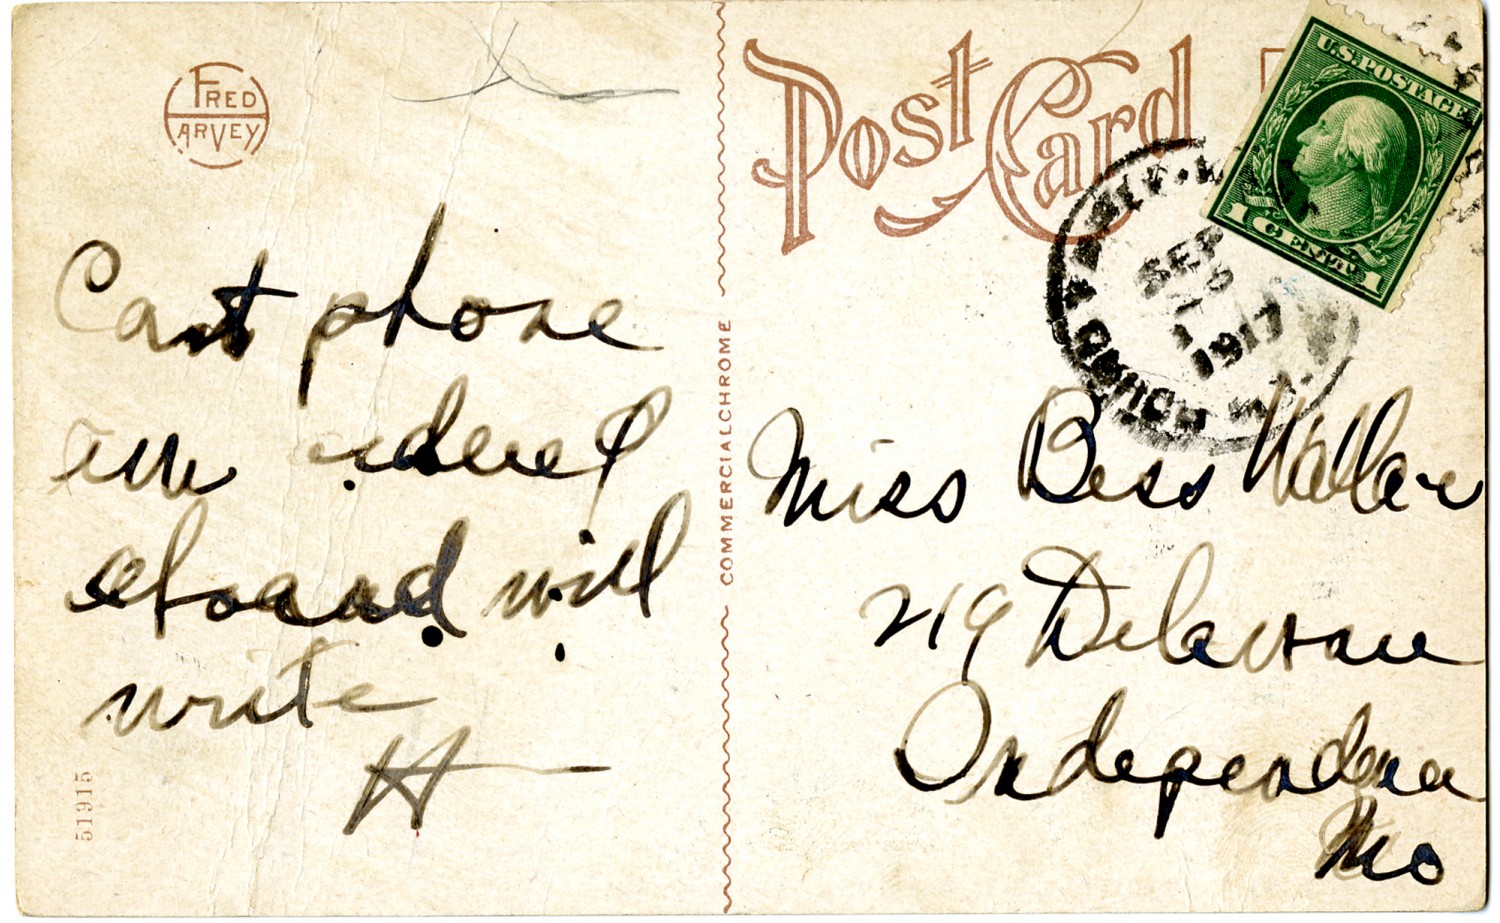 FRED
HARVEY
Cant phone
am ordered
aboard will
write
H
51915
COMMERCIALCHROME
Post Card
U.S. POSTAGE
1 CENT 1
SEP
1917
Miss Bess Wallace
219 Delaware
Independence
Mo